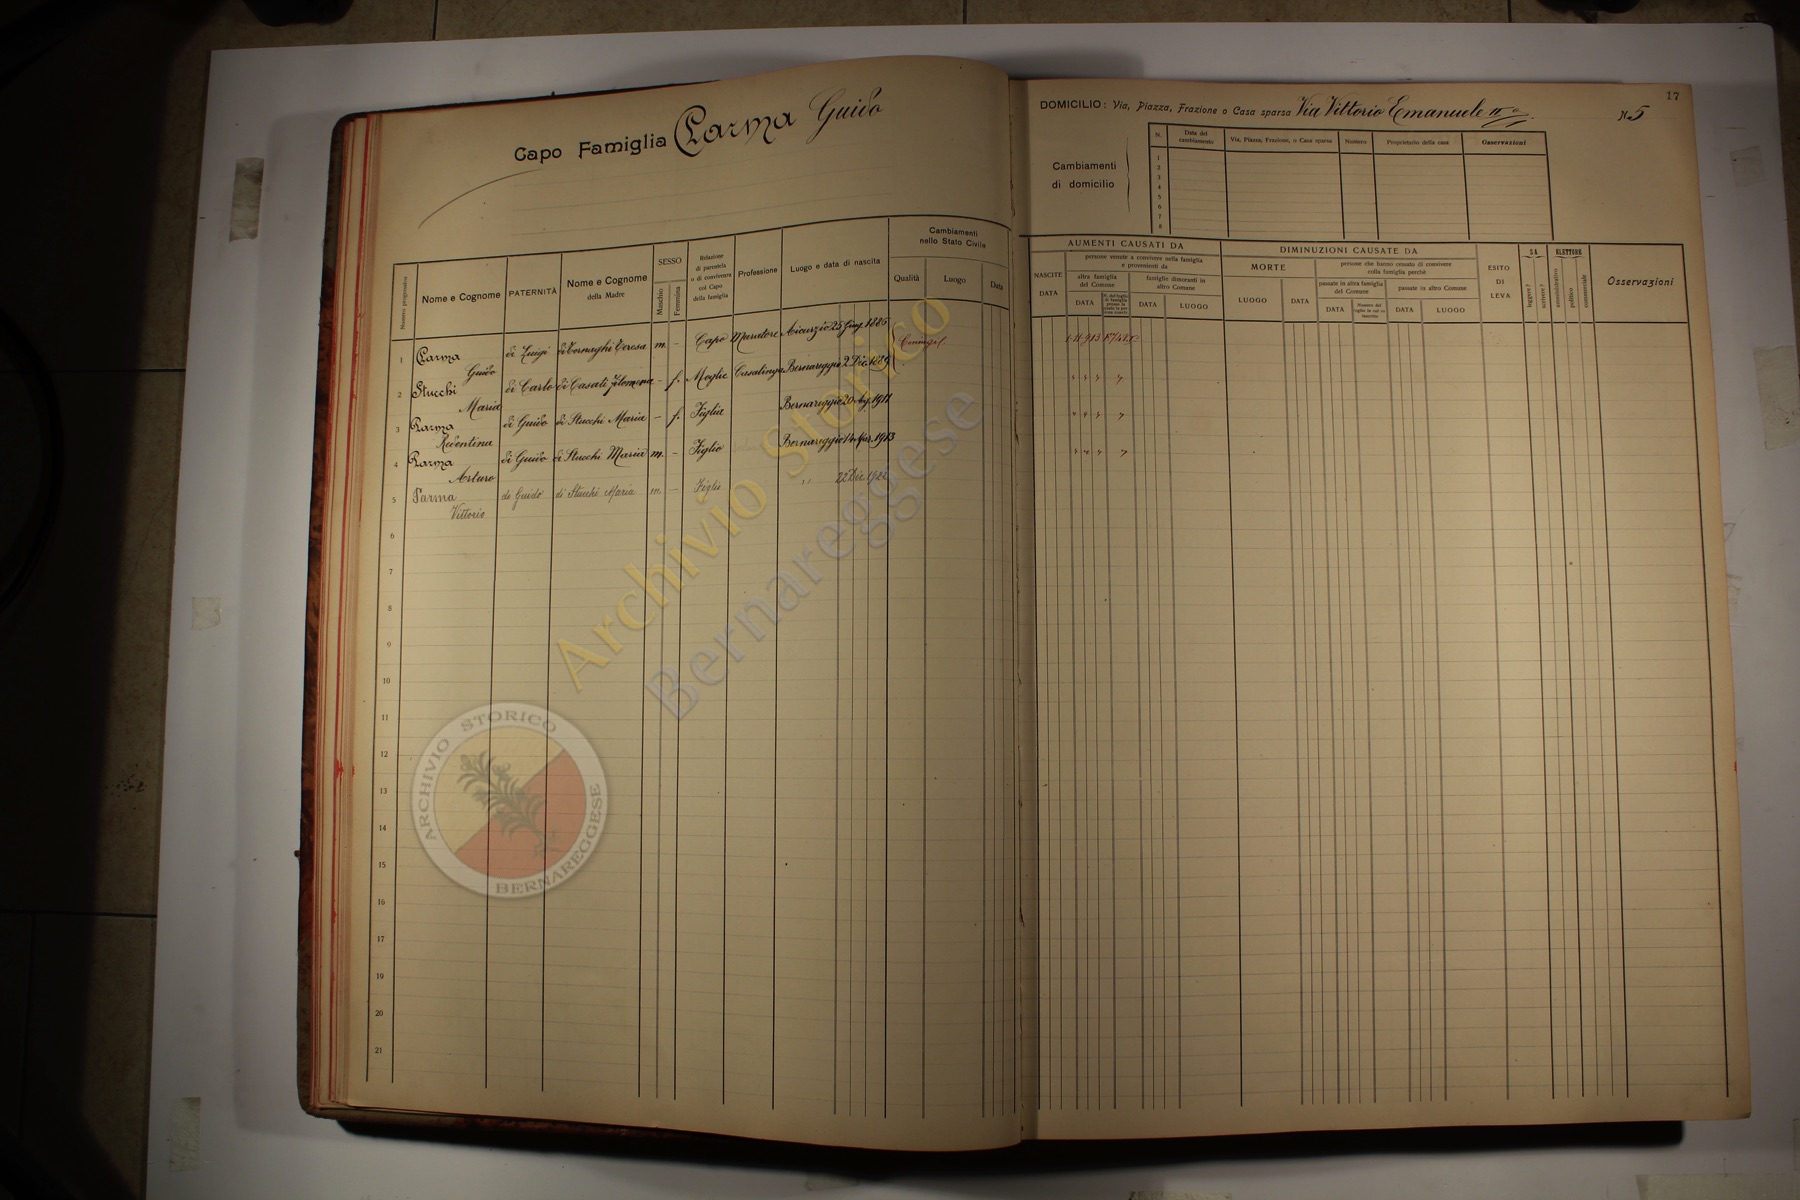 Capo Famiglia Parma Guido
17
DOMICILIO: Via, Piazza, Frazione o Casa sparsa Via Vittorio Emanuele II° N. 5
Cambiamenti
di domicilio
N. Data del cambiamento Via, Piazza, Frazione, o Casa sparsa Numero Proprietario della casa Osservazioni
1
2
3
4
5
6
7
8
Numero progressivo
Nome e Cognome
PATERNITÀ
Nome e Cognome
della Madre
SESSO
Maschio
Femmina
Relazione
di parentela
o di convivenza
col Capo
della famiglia
Professione
Luogo e data di nascita
Cambiamenti
nello Stato Civile
Qualità Luogo Data
AUMENTI CAUSATI DA
NASCITE
DATA
persone venute a convivere nella famiglia
e provenienti da
altra famiglia
del Comune
DATA
famiglie dimoranti in
altro Comune
DATA LUOGO
DIMINUZIONI CAUSATE DA
MORTE
LUOGO DATA
persone che hanno cessato di convivere
colla famiglia perchè
passate in altra famiglia
del Comune
DATA
passate in altro Comune
DATA LUOGO
ESITO
DI
LEVA
SA
leggere?
scrivere?
ELETTORE
amministrativo
politico
commerciale
Osservazioni
1 Parma di Luigi di Tornaghi Teresa m. - Capo Muratore Aicurzio 25 Giug. 1885 Coniug.
Guido
2 Stucchi di Carlo di Casati Filomena - f. Moglie Casalinga Bernareggio 2 Dic. 1889
Maria
3 Parma di Guido di Stucchi Maria - f. Figlia Bernareggio 20 Ag. 1911
Redentina
4 Parma di Guido di Stucchi Maria m. - Figlio Bernareggio 14 Mar. 1913
Arturo
5 Parma di Guido di Stucchi Maria m. - Figlio " 22 Dic 1922
Vittorio
6
7
8
9
10
11
12
13
14
15
16
17
18
19
20
21
Archivio Storico
Bernareggese
ARCHIVIO STORICO
BERNAREGGESE